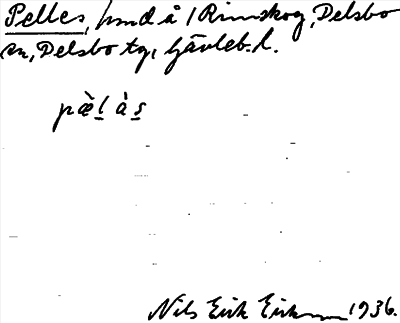 Pelles, hmd å 1 Rimskog, Delsbo
sn, Delsbo tg, Gävleb. l.
pæ̀l̲ às̲
Nils Erik Eriksson 1936.